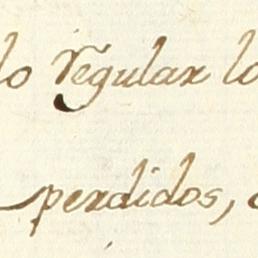 lo regular lo
perdidos,